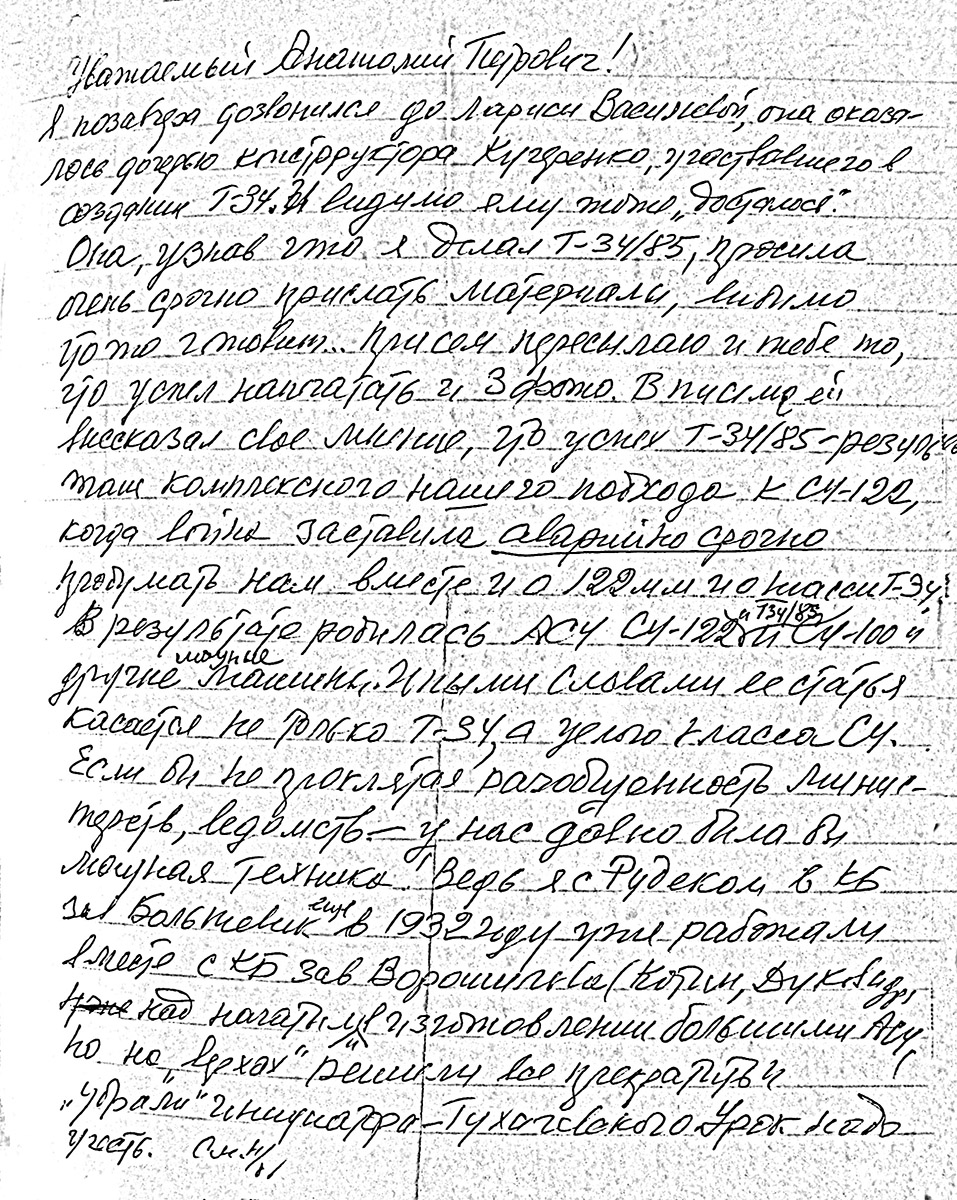 Уважаемый Анатолий Петрович!
Я позавчера дозвонился до Ларисы Васильевой, она оказа-
лась дочерью конструктора Кучеренко, участвовавшего в
создании Т-34. И видимо ему тоже „досталось".
Она, узнав что я делал Т-34/85, просила
очень срочно прислать материалы, видимо
что-то готовит... При сем пересылаю и тебе то,
что успел напечатать и 3 фото. В письме ей
высказал свое мнение, что успех Т-34/85 – резуль-
тат комплексного нашего подхода к СУ-122,
когда война заставила аварийно срочно
продумать нам вместе и о 122мм и о шасси Т-34.
В результате родилась АСУ СУ-122 и Т34/85 и СУ-100 и
другие мощные машины. Иными словами ее статья
касается не только Т-34, а целого класса СУ.
Если бы не проклятая разобщенность минис-
терств, ведомств – у нас давно была бы
мощная техника. Ведь я с Рудеком в КБ
зав Большевик еще в 1932 году уже работали
вместе с КБ зав Ворошилова (Котин, Духов и др,
над начатыми изготовлении большими АСУ,
но на „верхах" решили все прекратить и
„убрали" инициатора – Тухачевского. Урок надо
учесть. См. н/